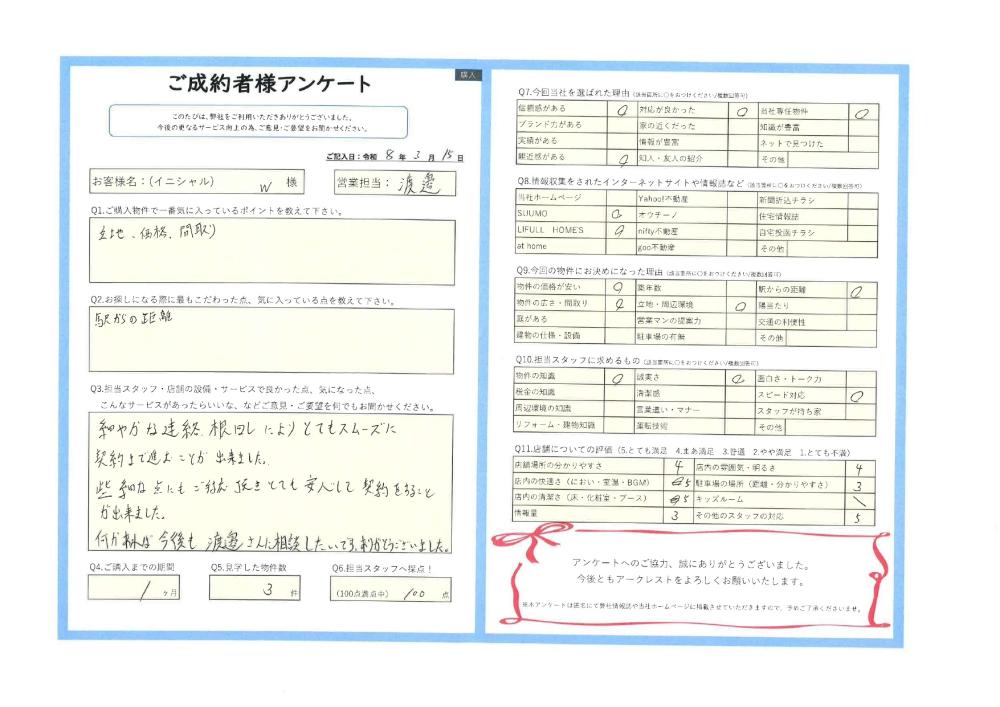 購入
ご成約者様アンケート
このたびは、弊社をご利用いただきありがとうございました。
今後の更なるサービス向上の為、ご意見・ご要望をお聞かせください。
ご記入日：令和 8 年 3 月 15 日
お客様名：(イニシャル) W 様
営業担当： 渡邉
Q1.ご購入物件で一番気に入っているポイントを教えて下さい。
立地、価格、間取り
Q2.お探しになる際に最もこだわった点、気に入っている点を教えて下さい。
駅からの距離
Q3.担当スタッフ・店舗の設備・サービスで良かった点、気になった点、
こんなサービスがあったらいいな、などご意見・ご要望を何でもお聞かせください。
細やかな連絡、根回しによりとてもスムーズに
契約まで進むことが出来ました。
些細な点にもご対応頂きとても安心して契約をすること
が出来ました。
何かあれば今後も渡邉さんに相談したいです。ありがとうございました。
Q4.ご購入までの期間
1 ヶ月
Q5.見学した物件数
3 件
Q6.担当スタッフへ採点！
(100点満点中) 100 点
Q7.今回当社を選ばれた理由 (該当箇所に○をおつけください/複数回答可)
信頼感がある ○ 対応が良かった ○ 当社専任物件 ○
ブランド力がある 家の近くだった 知識が豊富
実績がある 情報が豊富 ネットで見つけた
親近感がある ○ 知人・友人の紹介 その他
Q8.情報収集をされたインターネットサイトや情報誌など (該当箇所に○をおつけください/複数回答可)
当社ホームページ Yahoo!不動産 新聞折込チラシ
SUUMO ○ オウチーノ 住宅情報誌
LIFULL HOME'S ○ nifty不動産 自宅投函チラシ
at home goo不動産 その他
Q9.今回の物件にお決めになった理由 (該当箇所に○をおつけください/複数回答可)
物件の価格が安い ○ 築年数 駅からの距離 ○
物件の広さ・間取り ○ 立地・周辺環境 ○ 陽当たり
庭がある 営業マンの提案力 交通の利便性
建物の仕様・設備 駐車場の有無 その他
Q10.担当スタッフに求めるもの (該当箇所に○をおつけください/複数回答可)
物件の知識 ○ 誠実さ ○ 面白さ・トーク力
税金の知識 清潔感 スピード対応 ○
周辺環境の知識 言葉遣い・マナー スタッフが持ち家
リフォーム・建物知識 運転技術 その他
Q11.店舗についての評価 (5.とても満足 4.まあ満足 3.普通 2.やや満足 1.とても不満)
店舗場所の分かりやすさ 4 店内の雰囲気・明るさ 4
店内の快適さ(におい・室温・BGM) 5 駐車場の場所(距離・分かりやすさ) 3
店内の清潔さ(床・化粧室・ブース) 5 キッズルーム \
情報量 3 その他のスタッフの対応 5
アンケートへのご協力、誠にありがとうございました。
今後ともアークレストをよろしくお願いいたします。
※本アンケートは匿名にて弊社情報誌や当社ホームページに掲載させていただきますので、予めご了承くださいませ。